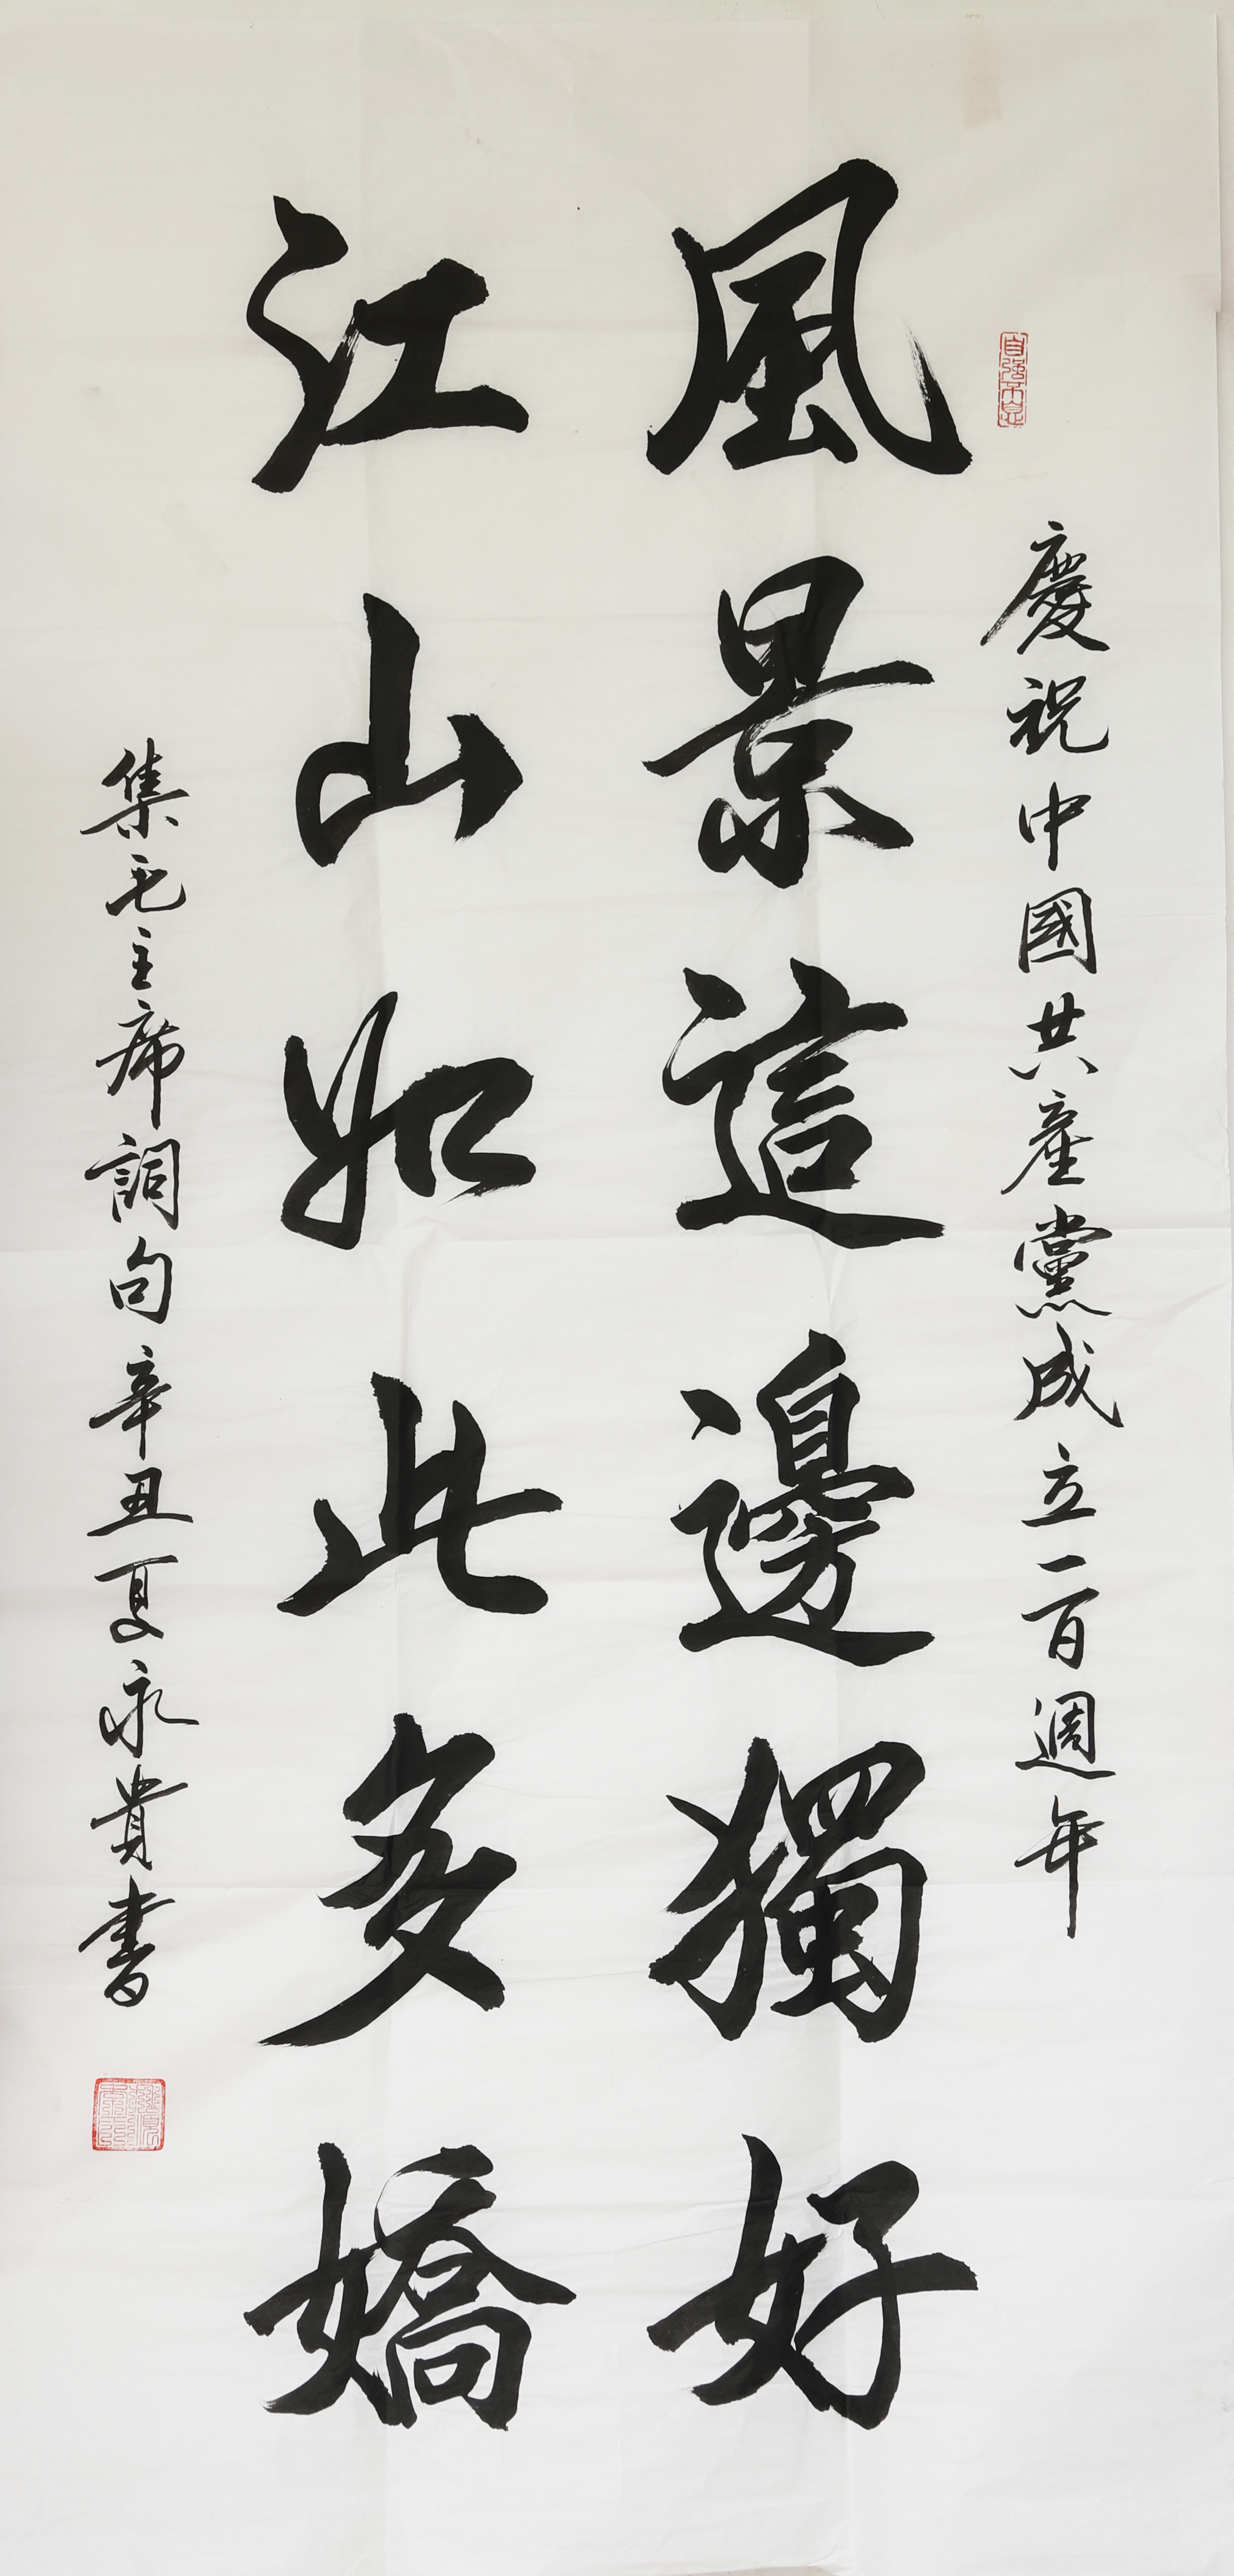 自強不息
慶祝中國共產黨成立一百週年
風景這邊獨好
江山如此多嬌
集毛主席詞句辛丑夏永貴書